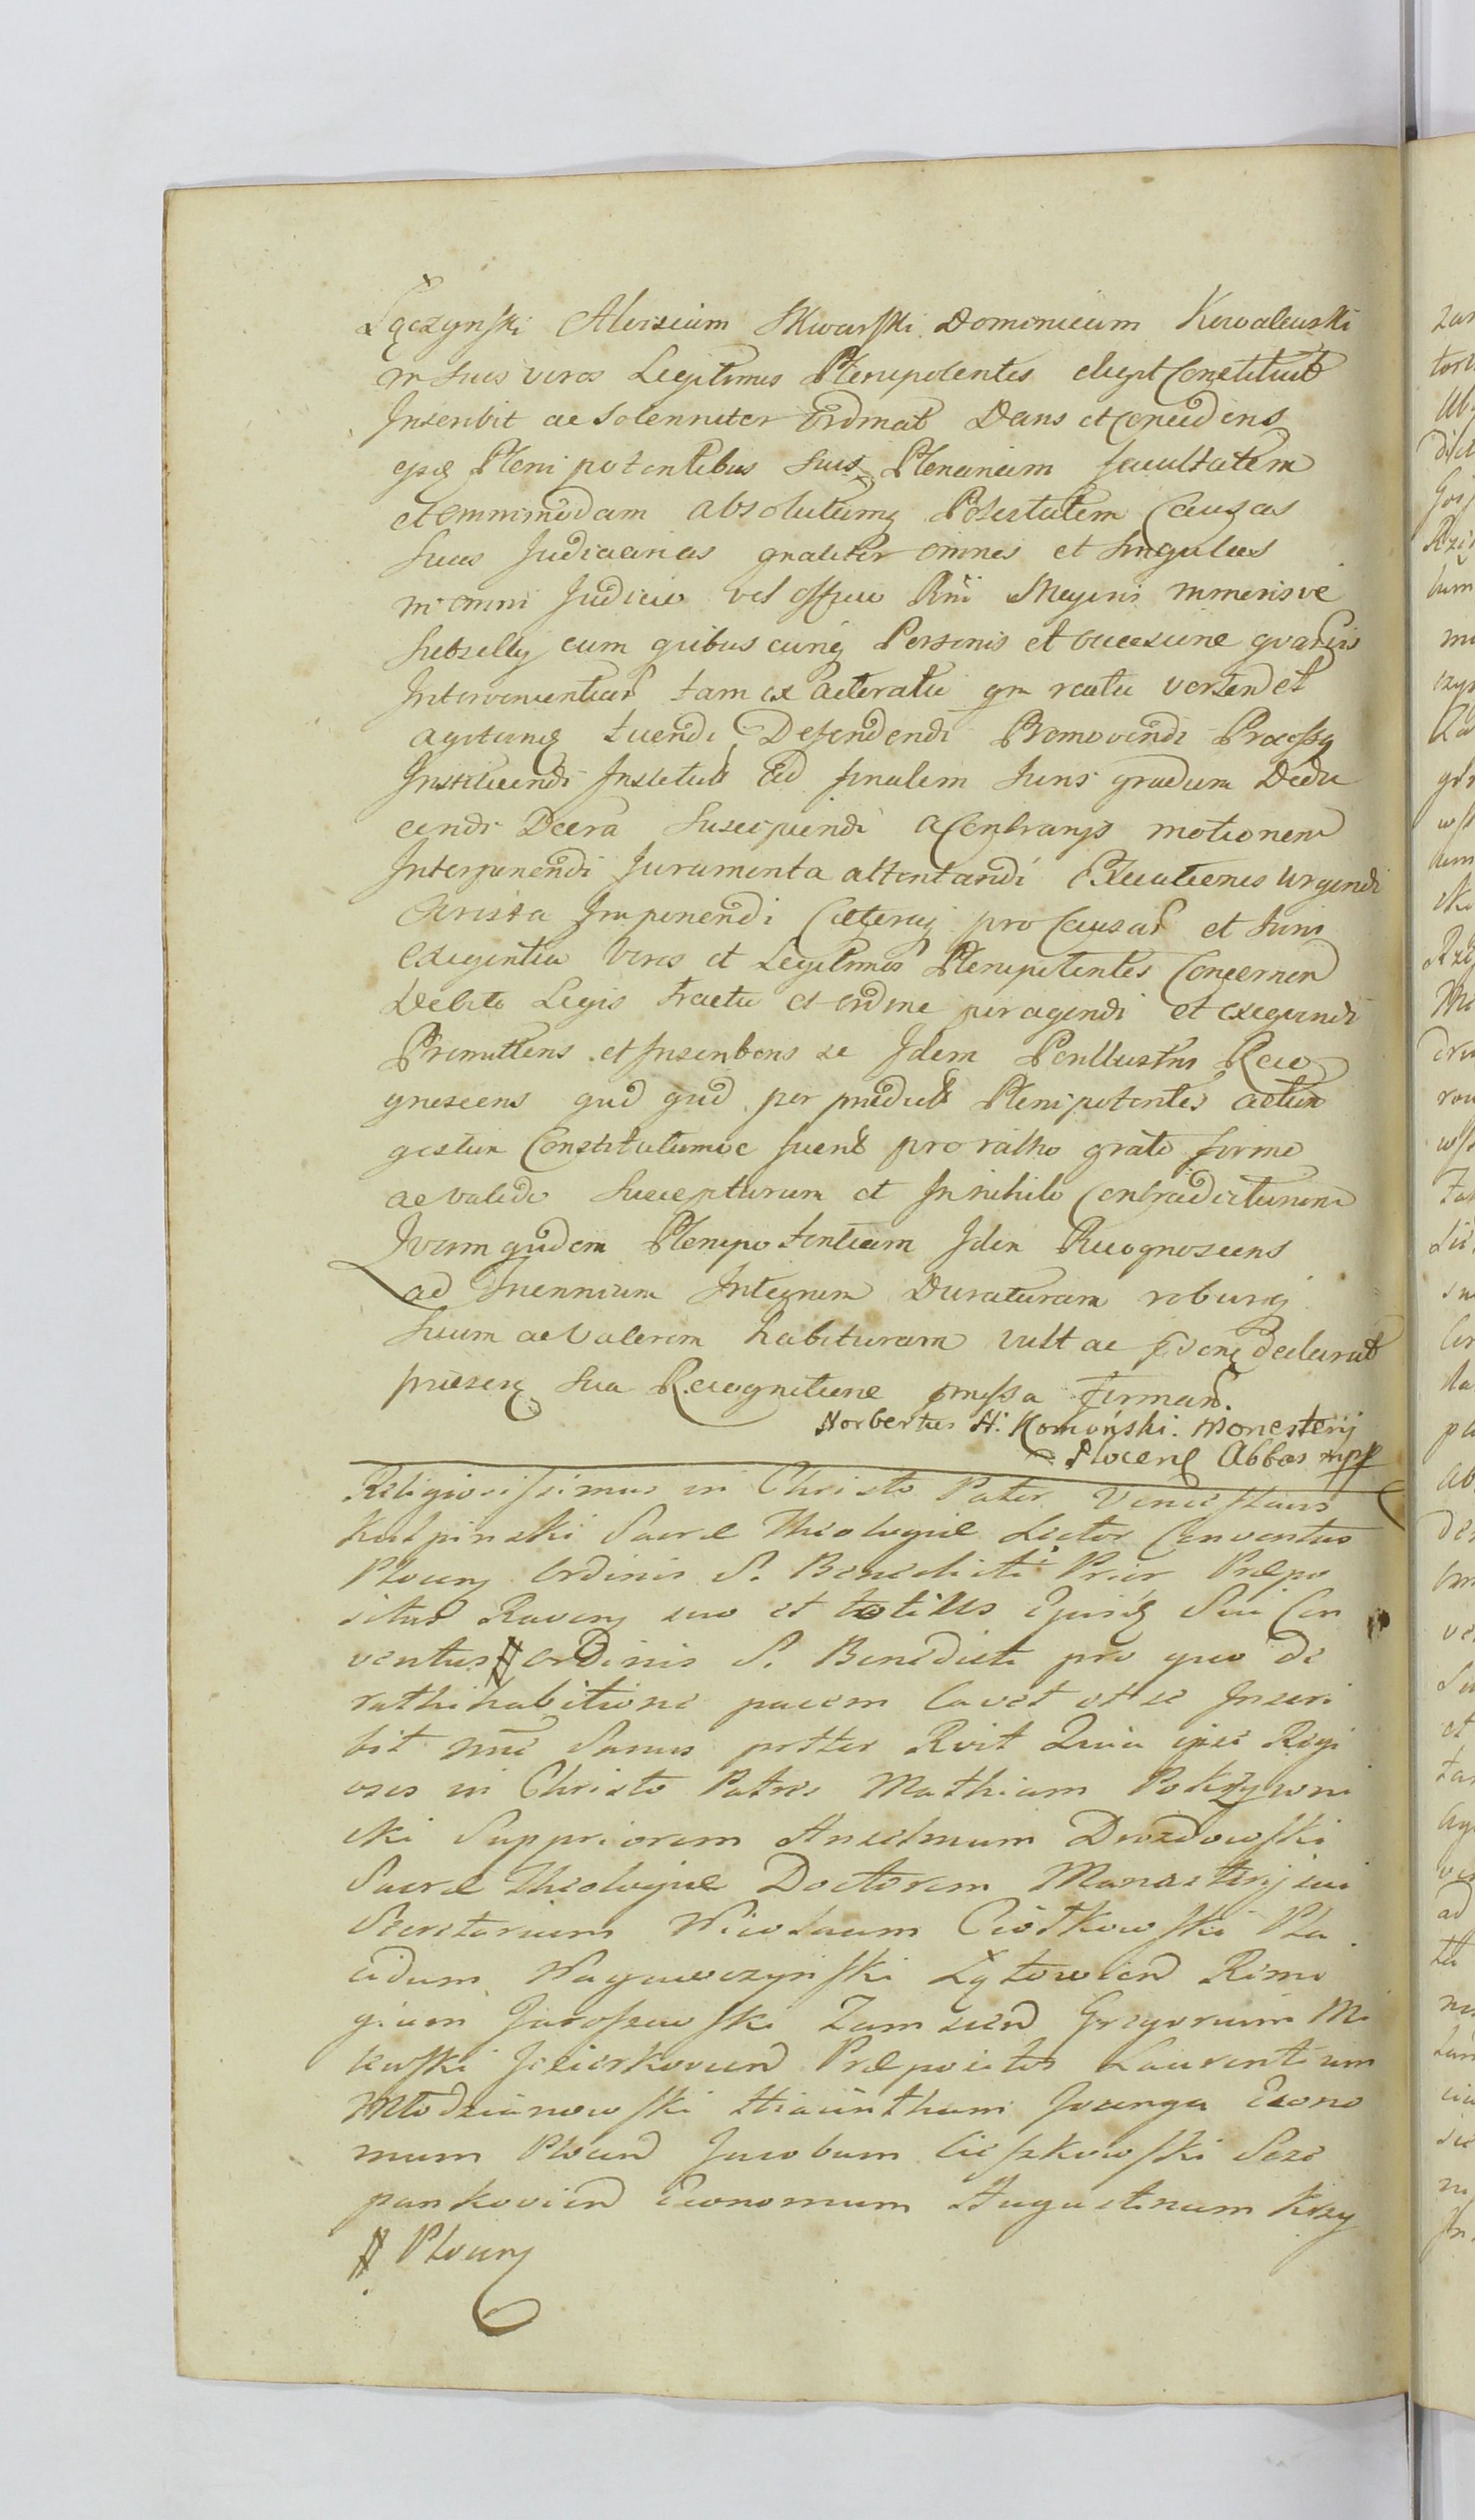 Łączynski Aloisium Skwarski Dominicum Kowalewski
in suos veros Legitimos Plenipotentes elegit Constituit
Inscribit ac Solenniter Ordinat Dans et Concedens
Plenipotentibus suis Plenariam facultatem
et omnimodam absolutamq Potestatem Causas
suas Judiciarias gnaliter omnes et singulas
in omni Judicio vel officio Rni Majoris minorisve
subsellij cum quibuscunq Personis et occasione quavis
tam ex actoratu qm reatu vertend et
agitand tuendi Defendendi Promovendi Processq
Instituendi Institut Ad finalem Juris gradum Dedu
cendi Decra Suscipiendi a Contrarijs motionem
Interponendi Juramenta attentandi Executiones Urgendi
Arista Imponendi Caeteraq pro Causar et Juris
exigentia veros et Legitimos Plenipotentes Concernen
Debito Legis tractu et ordine peragendi et exequendi
Promittens et Inscribens se Idem Perillustris Reco
gnoscens qud qud per Plenipotentes actum
gestum Constitutumve fuerit pro ratho grato firmo
ac valido Suscepturum et In nihilo Contradicturum
Quam qudem Plenipotentiam Idem Recognoscens
ad Triennium Integrum Duraturam roburq
suum ac Valorem habituram vult ac declarat
sua Recognitione
Norbertus H: Komoński. Monasterij
Plocens Abbas mpp
Religiosissimus in Christo Pater Venceslaus
Kulpinski Sacrae Theologiae Lector Conventus
Plocen Ordinis S. Benedicti Prior Praepo
situs suo et totius Ejusd Sui Con
ventus # Ordinis S. Benedicti pro quo de
rathihabitione pacem Cavet et se Inscri
bit Sanus Quia ipse Rligi
osos in Christo Patres Mathiam Pokrzywni
cki Suppriorem Anselmum Drozdowski
Sacrae Theologiae Doctorem Monasterij sui
Secretarium Nicolaum Ciołkowski Pla
cidum Wagawczyński Remi
gium Jaroszewski Gregorium Mi
lewski Praepositos Laurentium
Młodzianowski Hiacinthum Econo
mum Plocen Jacobum Cieszkowski Szcze
pankovien Economum Augustinum Krzy
# Plocen